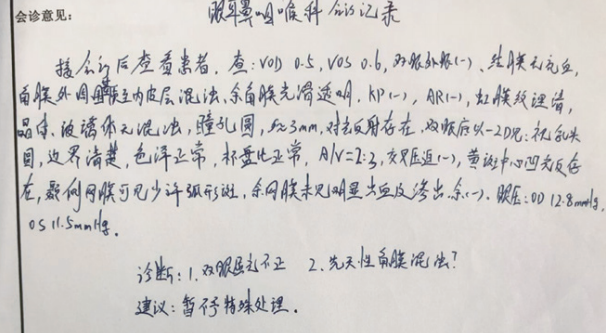 会诊意见：
眼耳鼻咽喉科会诊记录
接会诊后查看患者，查：VOD 0.5，VOS 0.6，双眼外眼(-)、结膜无充血，
角膜外周内皮层混浊，余角膜光滑透明，KP(-)，AR(-)，虹膜纹理清，
晶体、玻璃体无混浊，瞳孔圆，≈3mm，对光反射存在，双眼底以-2D见：视乳头
圆，边界清楚，色泽正常，杯盘比正常，A/V=2:3，交叉压迫(-)，黄斑中心凹光反存
在，颞侧网膜可见少许弧形斑，余网膜未见明显出血及渗出，余(-)。眼压：OD 12.8mmHg，
OS 11.5mmHg。
诊断：1.双眼屈光不正 2.先天性角膜混浊？
建议：暂不予特殊处理。